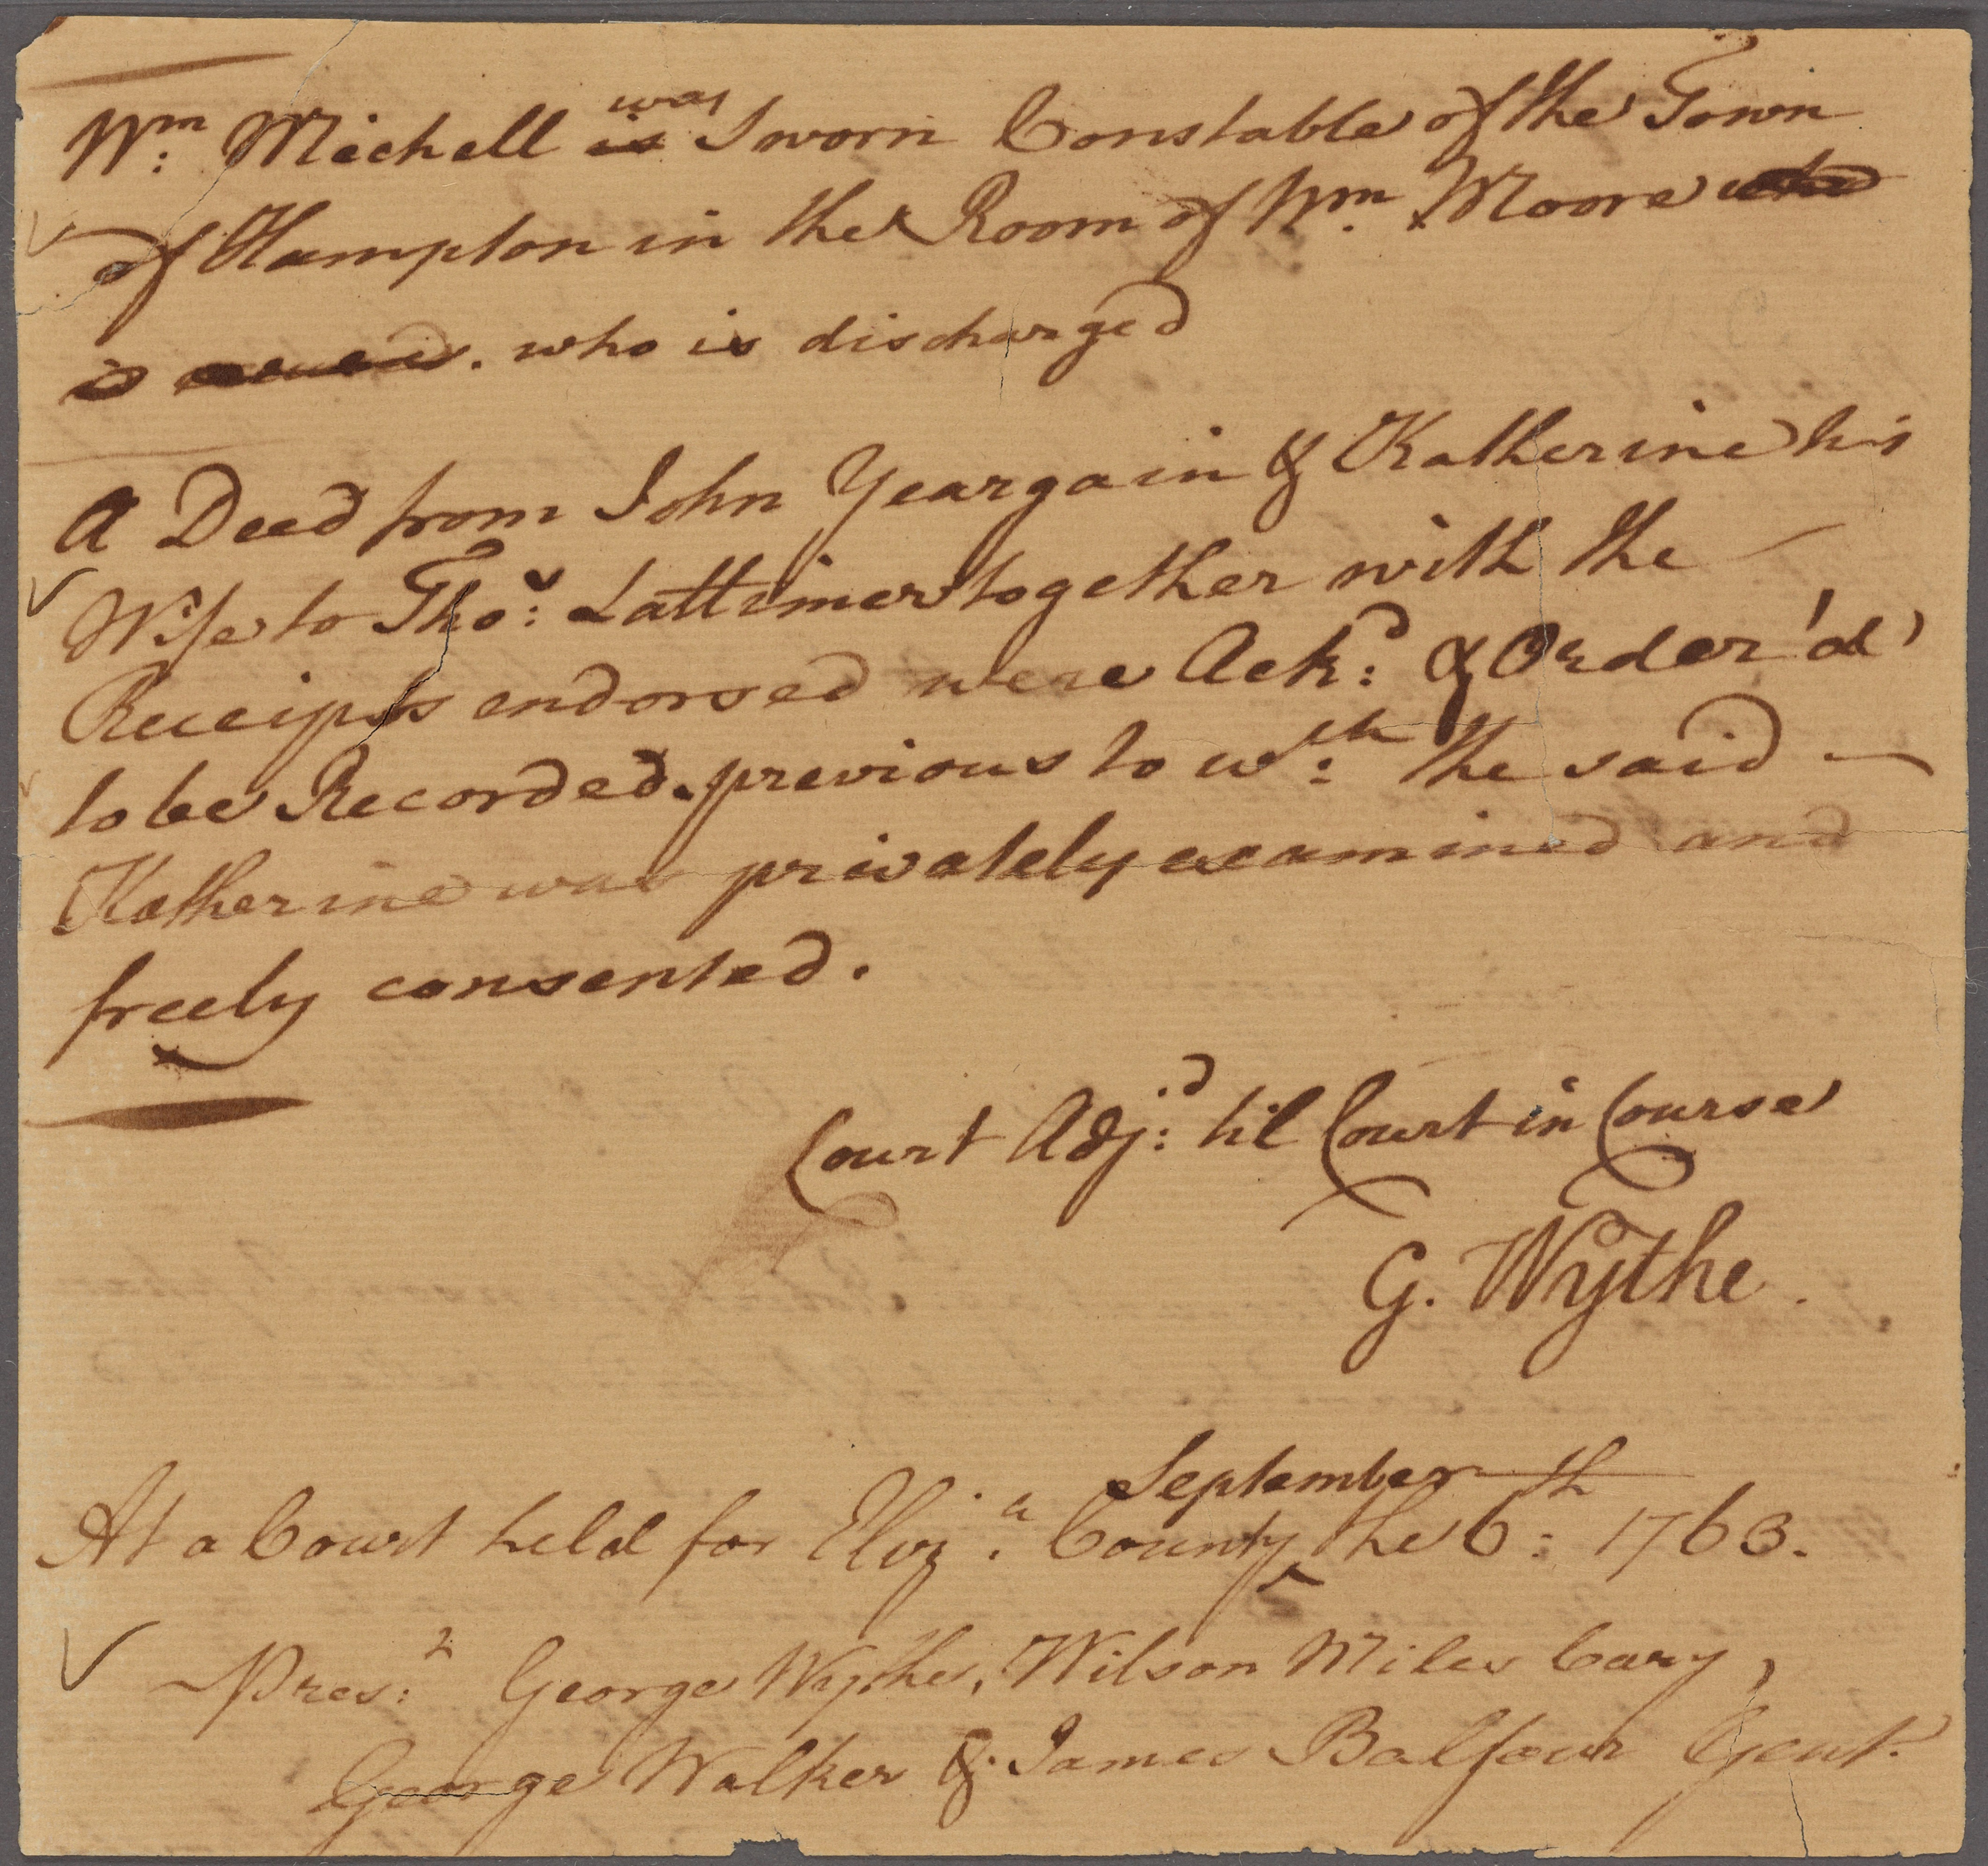 Wm: Michell is was Sworn Constable of the Town
of Hampton in the Room of Wm. Moore who
is who is discharged
A Deed from John Yeargain & Katherine his
Wife to Thos: Lattimer together with the
Receipts endorsed were Ackd: & Order'd
to be Recorded. previous to wch: the said —
Katherine was privately examined and
freely consented.
Court Adjd: til Court in Course
G. Wythe.
At a Court held for Eliza. County September the 6th: 1763.
Prest: George Wythe, Wilson Miles Cary,
George Walker & James Balfour Gent.